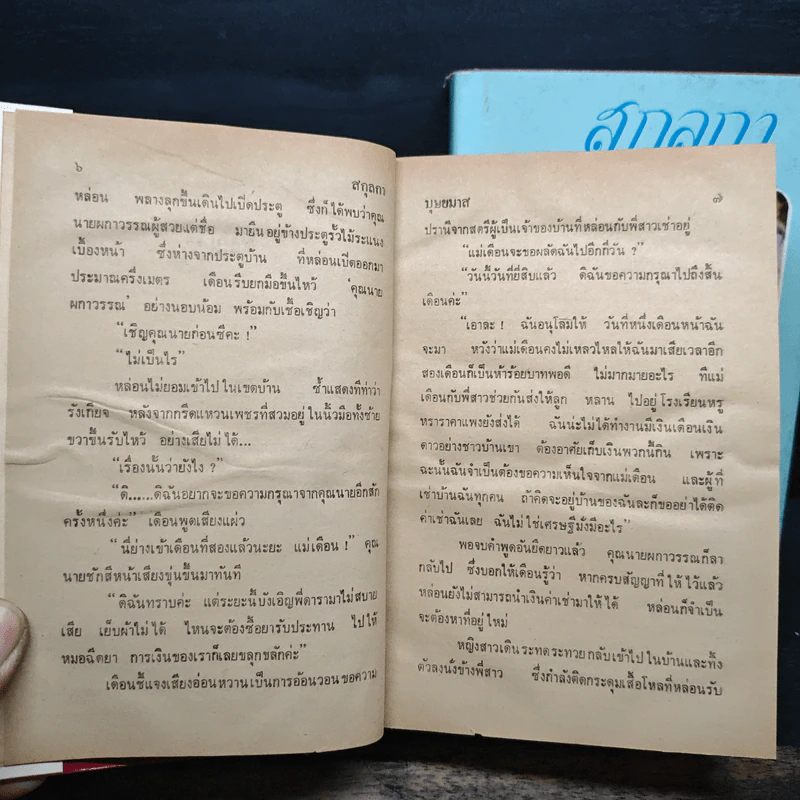 ๖
สกุลกา
หล่อน พลางลุกขึ้นเดินไปเปิดประตู ซึ่งก็ได้พบว่าคุณ
นายผกาวรรณผู้สวยแต่ชื่อ มายืนอยู่ข้างประตูรั้วไม้ระแนง
เบื้องหน้า ซึ่งห่างจากประตูบ้าน ที่หล่อนเปิดออกมา
ประมาณครึ่งเมตร เดือนรีบยกมือขึ้นไหว้ ‘คุณนาย
ผกาวรรณ’ อย่างนอบน้อม พร้อมกับเชื้อเชิญว่า
“เชิญคุณนายก่อนซีคะ !”
“ไม่เป็นไร”
หล่อนไม่ยอมเข้าไปในเขตบ้าน ซ้ำแสดงทีท่าว่า
รังเกียจ หลังจากกรีดแหวนเพชรที่สวมอยู่ในนิ้วมือทั้งซ้าย
ขวาขึ้นรับไหว้ อย่างเสียไม่ได้...
“เรื่องนั้นว่ายังไง ?”
“ดิ......ดิฉันอยากจะขอความกรุณาจากคุณนายอีกสัก
ครั้งหนึ่งค่ะ” เดือนพูดเสียงแผ่ว
“นี่ย่างเข้าเดือนที่สองแล้วนะยะ แม่เดือน !” คุณ
นายชักสีหน้าเสียงขุ่นขึ้นมาทันที
“ดิฉันทราบค่ะ แต่ระยะนี้บังเอิญพี่ดารามาไม่สบาย
เสีย เย็บผ้าไม่ได้ ไหนจะต้องซื้อยารับประทาน ไปให้
หมอฉีดยา การเงินของเราก็เลยขลุกขลักค่ะ”
เดือนชี้แจงเสียงอ่อนหวานเป็นการอ้อนวอน ขอความ
บุษยมาส
๗
ปรานีจากสตรีผู้เป็นเจ้าของบ้านที่หล่อนกับพี่สาวเช่าอยู่
“แม่เดือนจะขอผลัดฉันไปอีกกี่วัน ?”
“วันนี้วันที่ยี่สิบแล้ว ดิฉันขอความกรุณาไปถึงสิ้น
เดือนค่ะ”
“เอาละ ! ฉันอนุโลมให้ วันที่หนึ่งเดือนหน้าฉัน
จะมา หวังว่าแม่เดือนคงไม่เหลวไหลให้ฉันมาเสียเวลาอีก
สองเดือนก็เป็นห้าร้อยบาทพอดี ไม่มากมายอะไร ทีแม่
เดือนกับพี่สาวช่วยกันส่งให้ลูก หลาน ไปอยู่โรงเรียนหรู
หราราคาแพงยังส่งได้ ฉันน่ะไม่ได้ทำงานมีเงินเดือนเงิน
ดาวอย่างชาวบ้านเขา ต้องอาศัยเก็บเงินพวกนี้กิน เพราะ
ฉะนั้นฉันจำเป็นต้องขอความเห็นใจจากแม่เดือน และผู้ที่
เช่าบ้านฉันทุกคน ถ้าคิดจะอยู่บ้านของฉันละก็ขออย่าได้ติด
ค่าเช่าฉันเลย ฉันไม่ใช่เศรษฐีมั่งมีอะไร”
พอจบคำพูดอันยืดยาวแล้ว คุณนายผกาวรรณก็ลา
กลับไป ซึ่งบอกให้เดือนรู้ว่า หากครบสัญญาที่ให้ไว้แล้ว
หล่อนยังไม่สามารถนำเงินค่าเช่ามาให้ได้ หล่อนก็จำเป็น
จะต้องหาที่อยู่ใหม่
หญิงสาวเดินระทดระทวยกลับเข้าไปในบ้านและทิ้ง
ตัวลงนั่งข้างพี่สาว ซึ่งกำลังติดกระดุมเสื้อโหลที่หล่อนรับ
สกุลกา